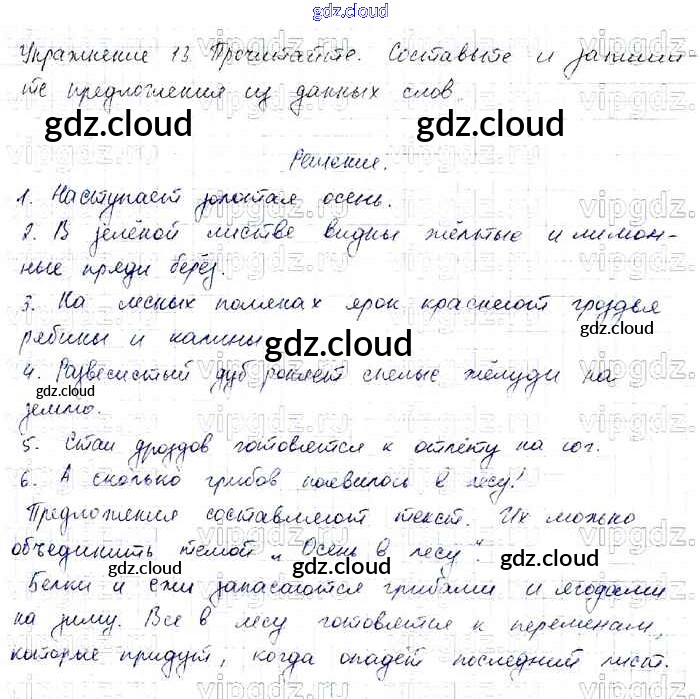 gdz.cloud
Упражнение 13 Прочитайте. Составьте и запиши-
те предложения из данных слов
gdz.cloud gdz.cloud
Решение.
1. Наступает золотая осень.
2. В зелёной листве видны жёлтые и лимон-
ные пряди берёз.
3. На лесных полянах ярко краснеют гроздья
gdz.cloud
рябины и калины
gdz.cloud
4. Развесистый дуб роняет спелые жёлуди на
gdz.cloud
землю.
5. Стаи дроздов готовятся к отлёту на юг.
6. А сколько грибов появилось в лесу!
Предложения составляют текст. Их можно
объединить темой „Осень в лесу".
gdz.cloud
Белки и ежи запасаются грибами и ягодами
на зиму. Все в лесу готовятся к переменам,
которые придут, когда опадет последний лист.